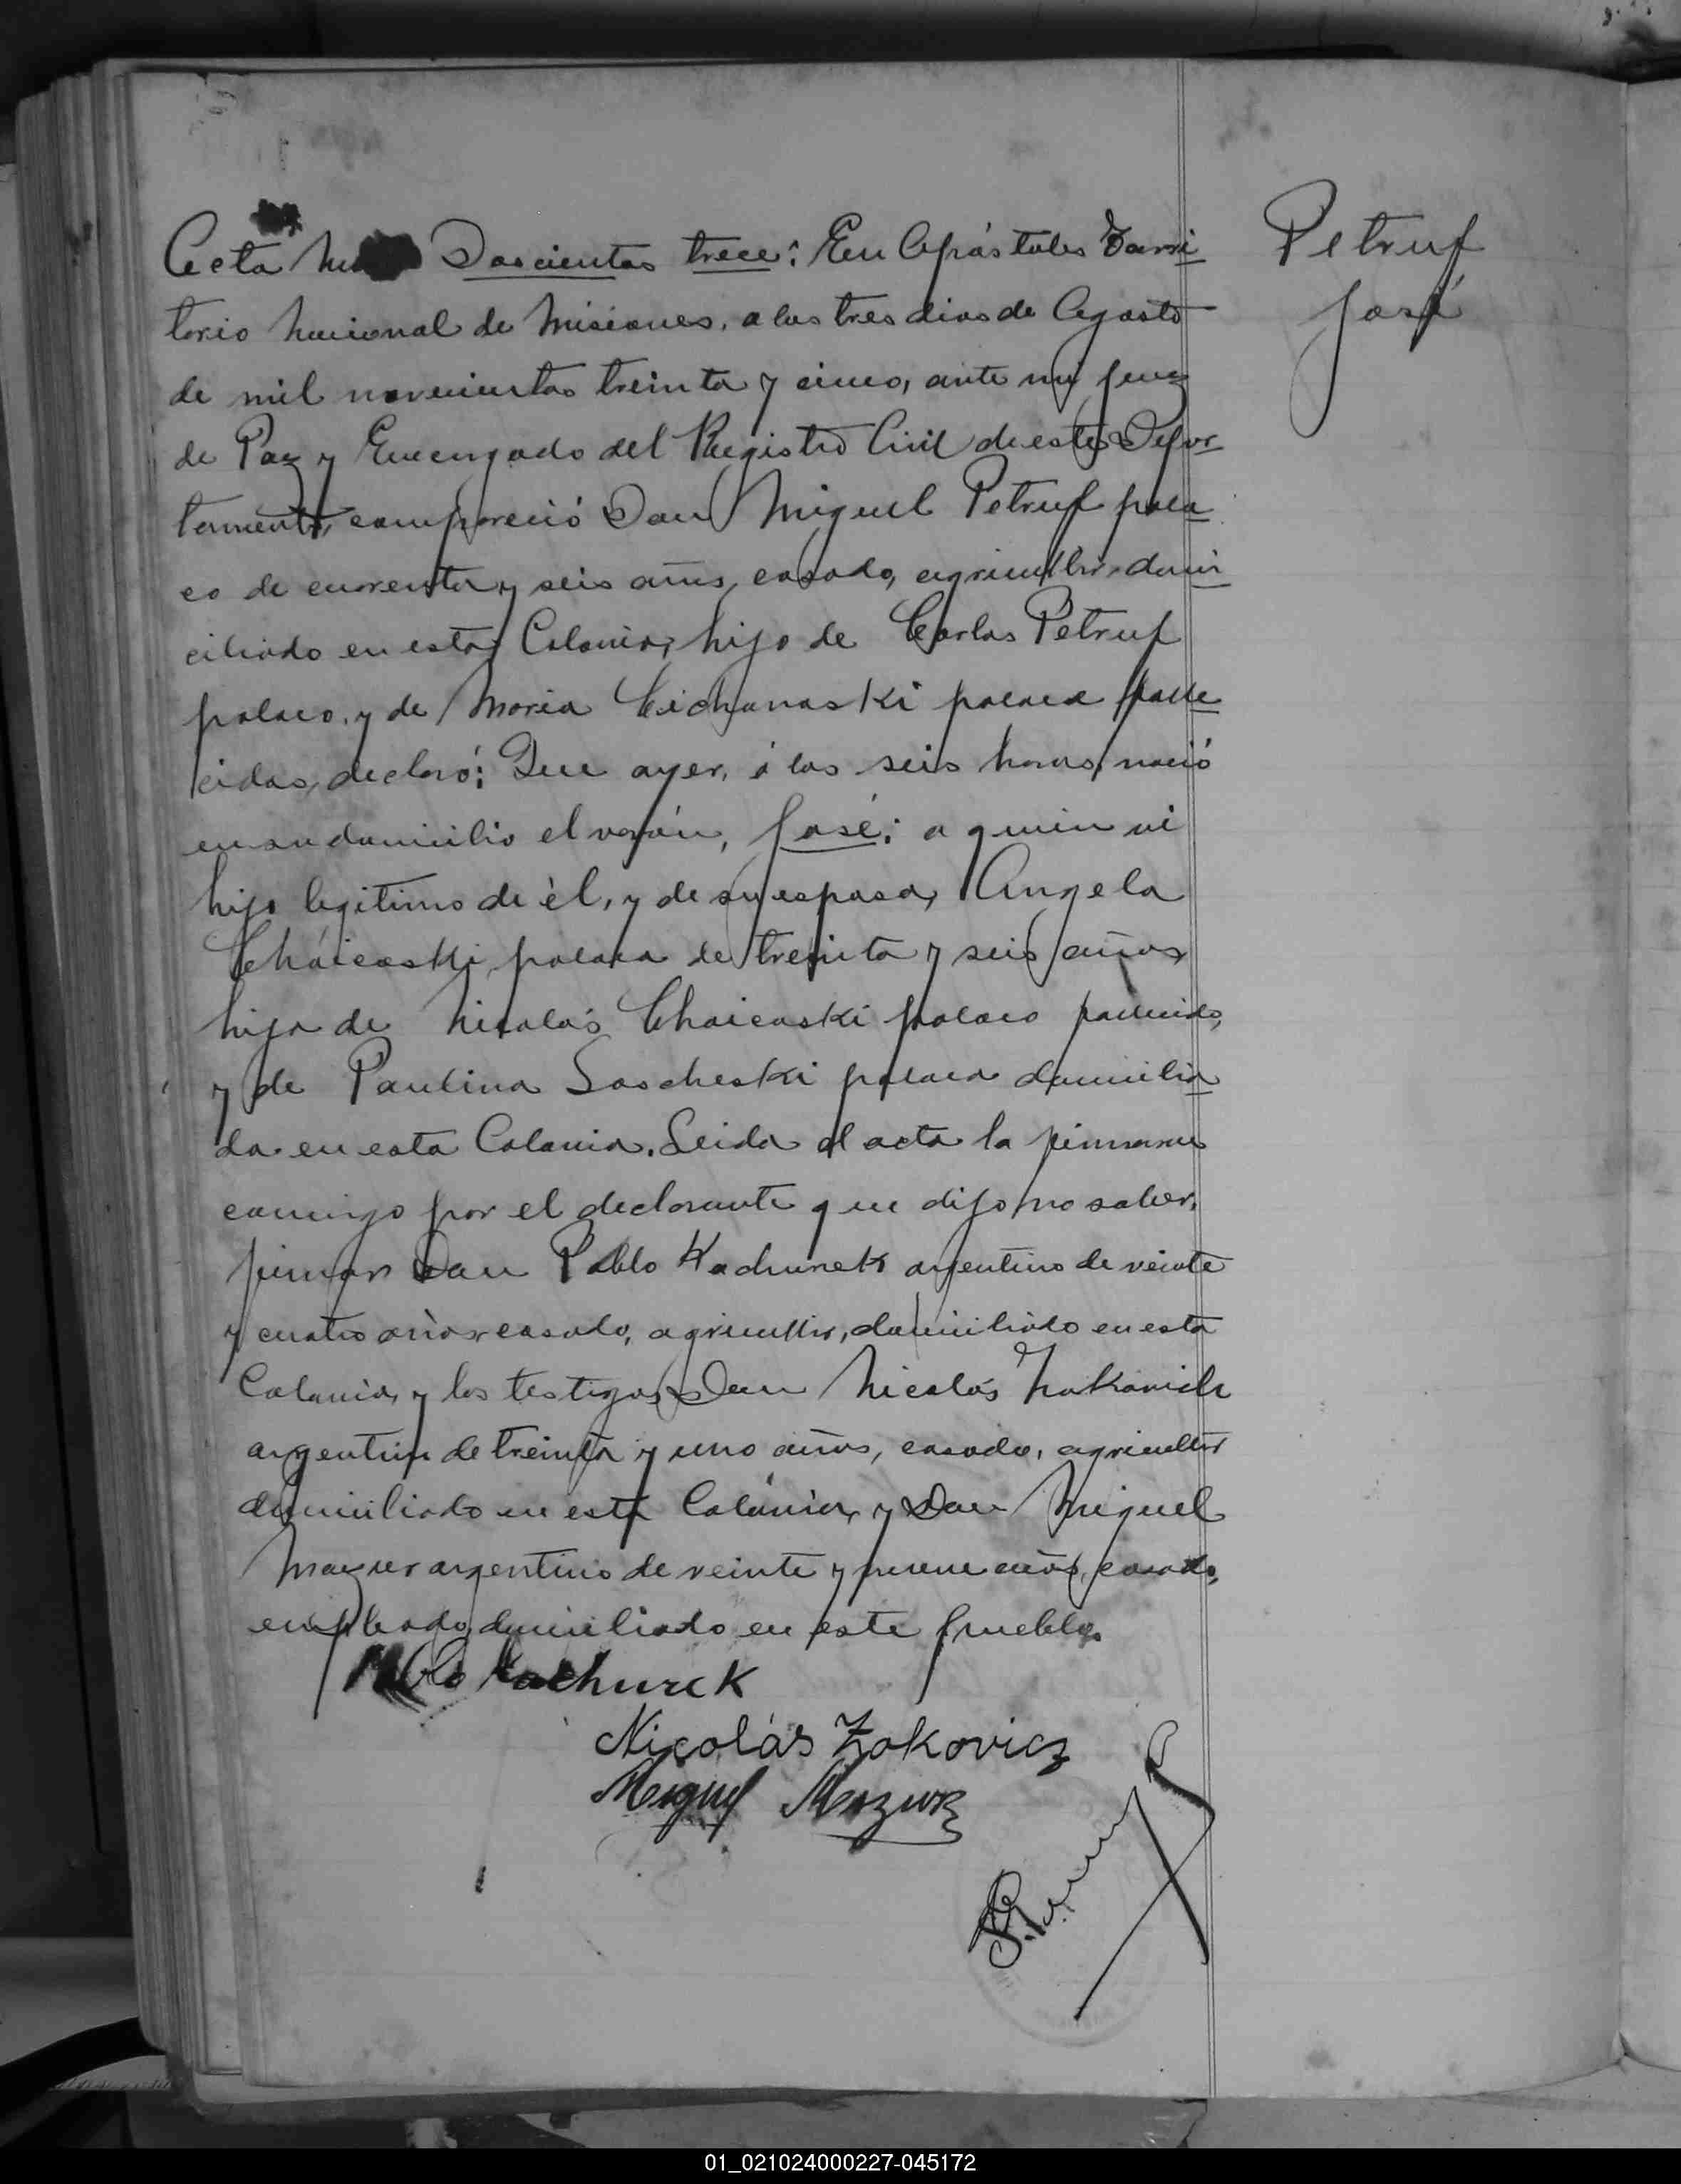 Petruf
José
Acta Doscientos trece: En Apóstoles Terri
torio Nacional de Misiones, a los tres dias de Agosto
de mil novecientos treinta y cinco, ante mi Juez
de Paz y Encargado del Registro Civil de este Depar
tamento, compareció Don Miguel Petruf pola
co de cuarenta y seis años, casado, agricultor, domi
ciliado en esta Colonia, hijo de Carlos Petruf
polaco, y de Maria Cichanaski polaca falle
cidos, declaró: Que ayer, á las seis horas, nació
en su domicilio el varón, José; a quien vi
hijo legitimo de él, y de su esposa, Angela
Cháicoski, polaca de treinta y seis años,
hija de Nicolás Chaicoski polaco fallecido,
y de Paulina Soscheski polaca domicilia
da en esta Colonia. Leida el acta la firmaron
conmigo por el declarante que dijo no saber,
firmar Don Pablo Kachurek argentino de veinte
y cuatro años, casado, agricultor, domiciliado en esta
Colonia, y los testigos Don Nicolás Zakovich
argentino de treinta y uno años, casado, agricultor
domiciliado en esta Colonia, y Don Miguel
Mazur argentino de veinte y nueve años, casado,
empleado, domiciliado en este pueblo.
Pablo Kachurek
Nicolás Zakovicz
Miguel Mazur
01_021024000227-045172